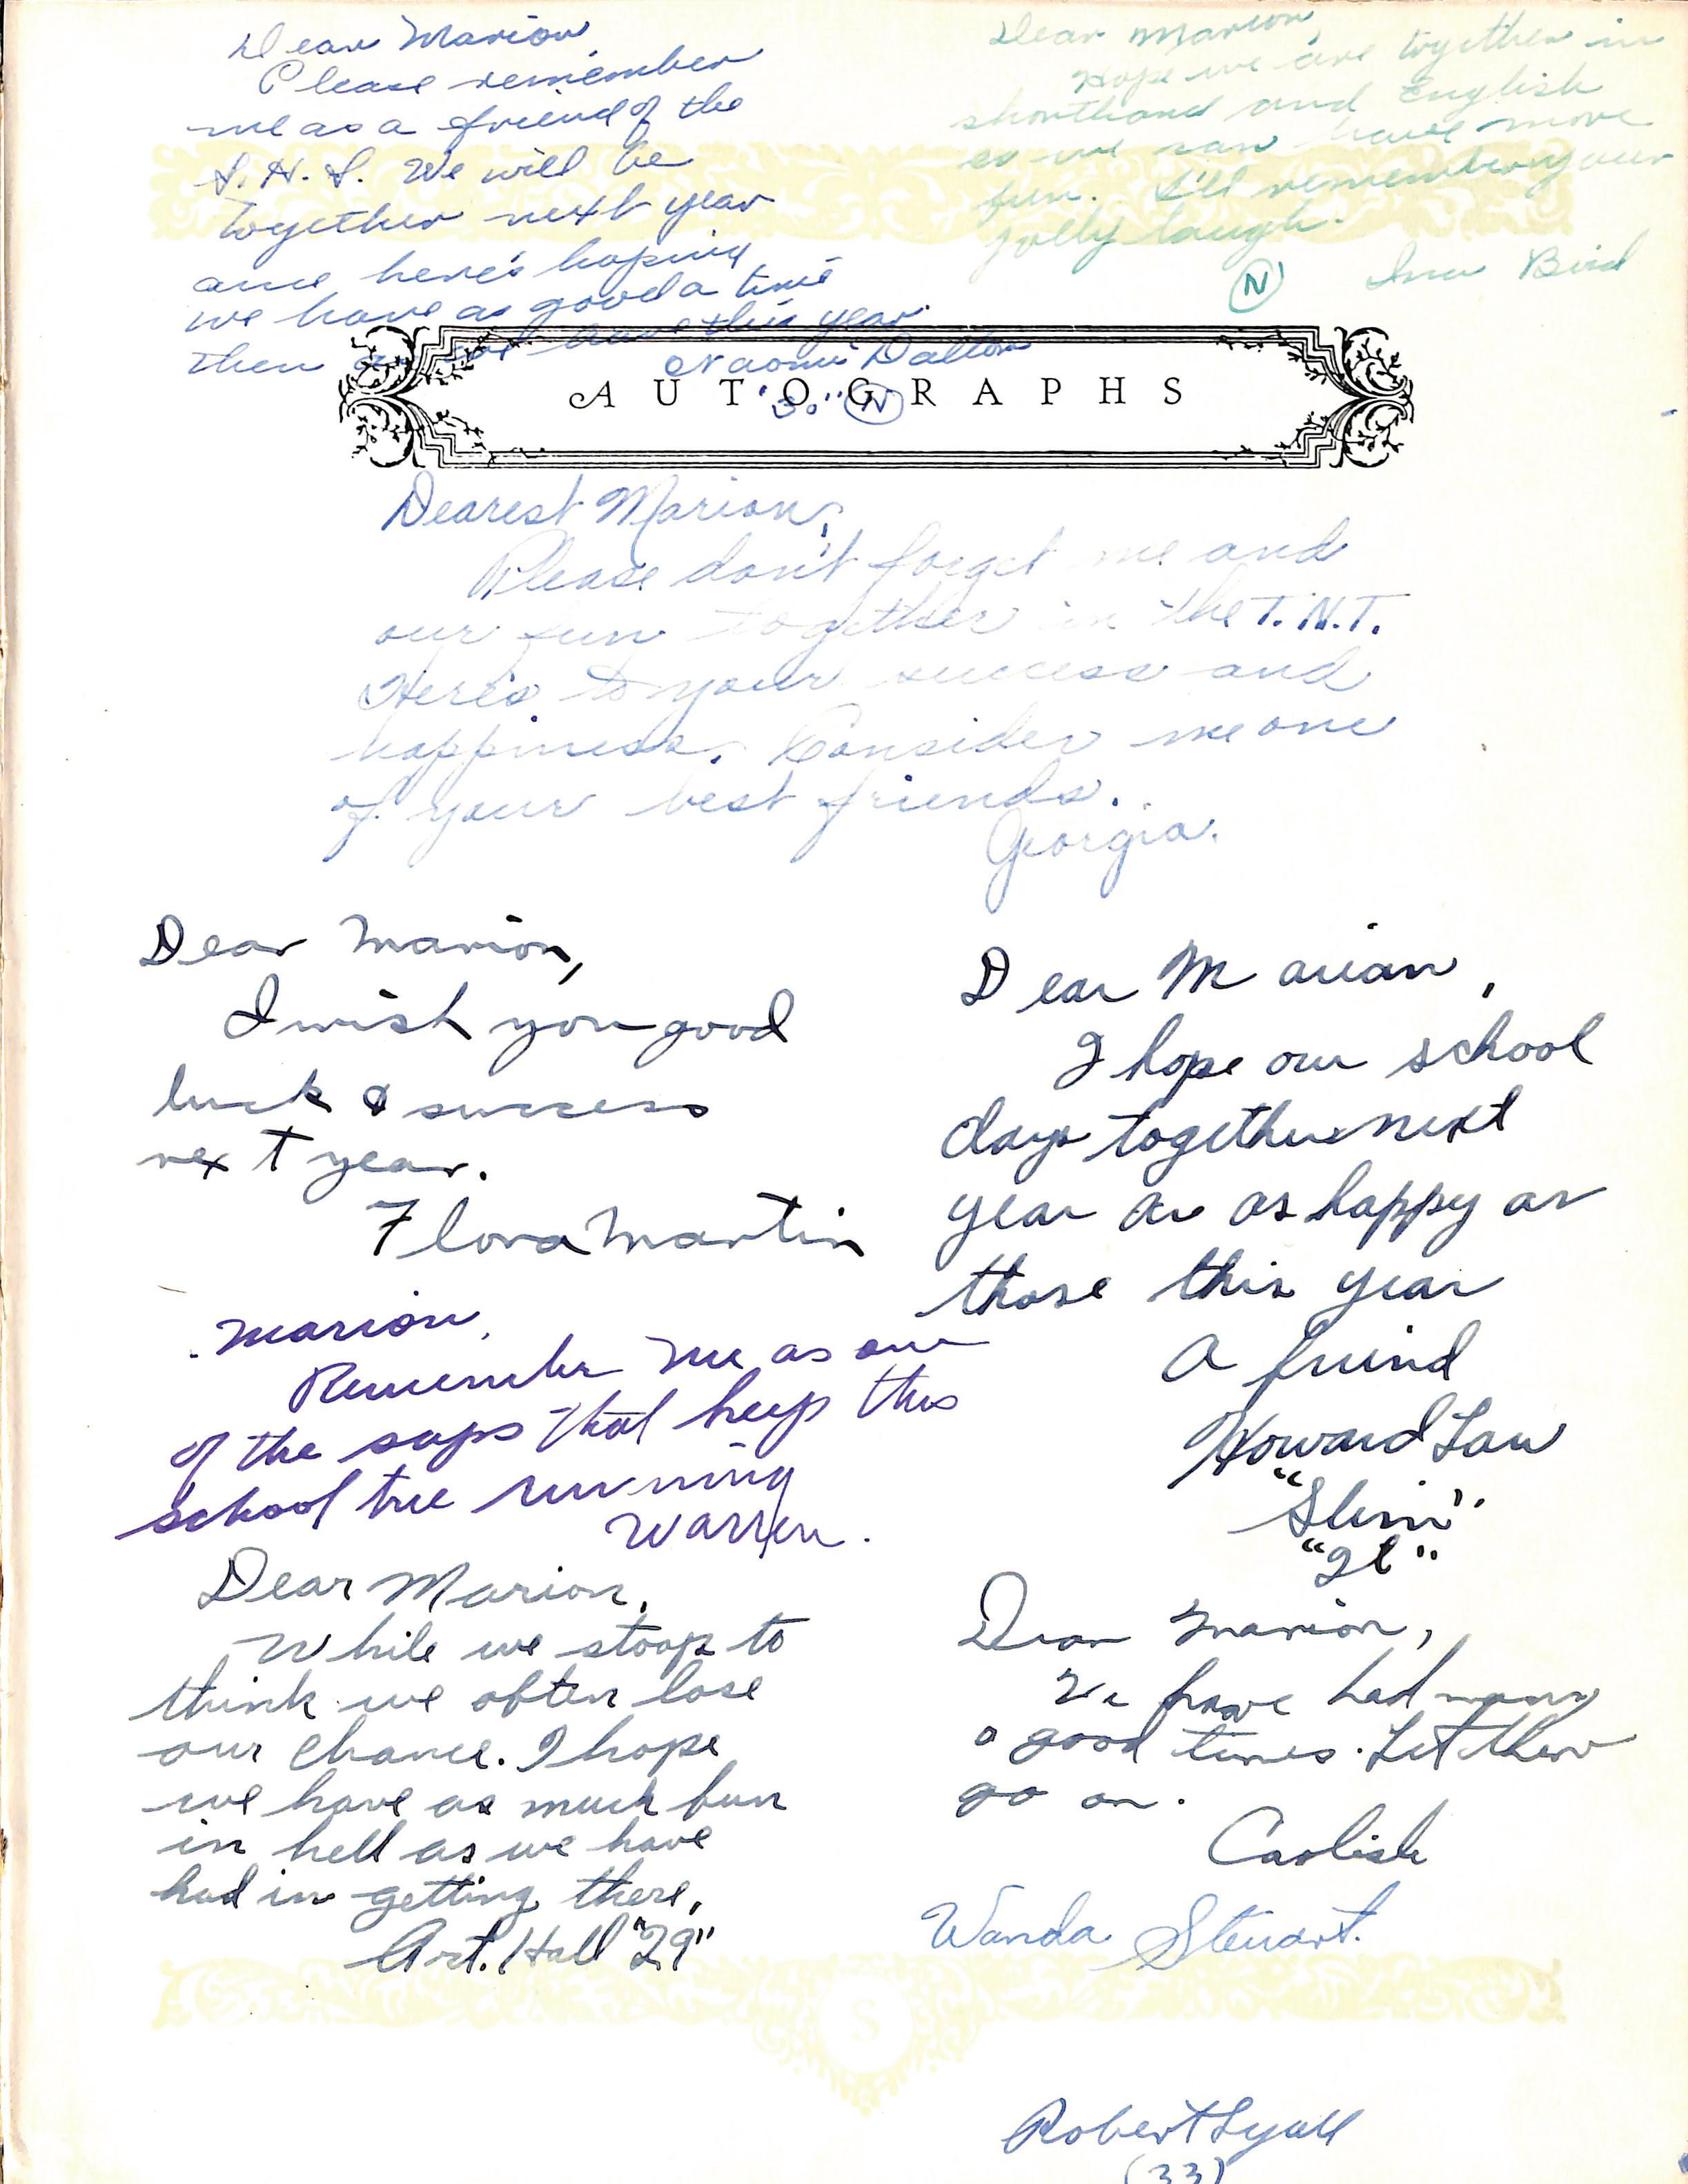 Dear Marion,
Please remember
me as a friend of the
S. H. S. We will be
together next year
and here's hoping
we have as good a time
then as we have this year.
Naomi Dalton
'30" N
Dear Marion,
Hope we are together in
shorthand and English
so we can have more
fun. I'll remember your
jolly laugh.
N Ina Bird
AUTOGRAPHS
Dearest Marion,
Please don't forget me and
our fun together in the T.N.T.
Here's to your success and
happiness. Consider me one
of your best friends.
Georgia.
Dear Marion,
I wish you good
luck & success
next year.
Flora Martin
Dear Marian,
I hope our school
days together next
year are as happy as
those this year
A friend
Howard Law
"Slim"
"It"
Marion,
Remember me as one
of the saps that keep this
school tree running
Warren.
Dear Marion,
While we stoop to
think we often lose
our chance. I hope
we have as much fun
in hell as we have
had in getting there.
Art. Hall "29"
Dear Marion,
We have had many
a good times. Let them
go on.
Carlisle
Wanda Stewart.
S
Robert Lyall
(33)